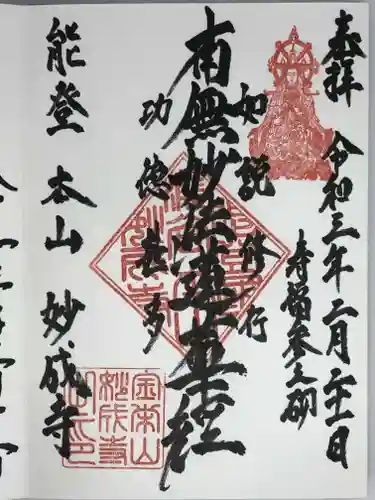 奉拝
令和三年二月二十一日
寿福参之砌
如説修行
南無妙法蓮華経
功徳甚多
能登 本山 妙成寺
金栄山
妙成寺